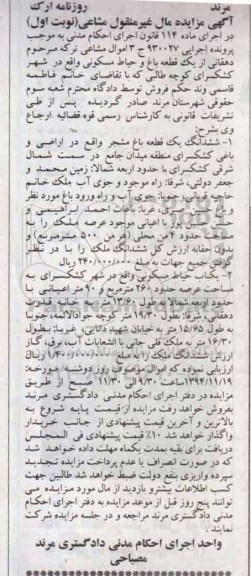 مرند روزنامه ارک
آگهی مزایده مال غیرمنقول مشاعی(نوبت اول)
در اجرای ماده ۱۱۴ قانون اجرای احکام مدنی به موجب
پرونده اجرایی ۹۳۰۰۲۷ ج ۳ اموال مشاعی ترکه مرحوم
دهقانی از یک قطعه باغ و حیاط مسکونی واقع در شهر
کشکسرای کوچه طالبی که با تقاضای خانم فاطمه
قاسمی وند حکم فروش توسط دادگاه محترم شعبه سوم
حقوقی شهرستان مرند صادر گردیده پس از طی
تشریفات قانونی به کارشناس رسمی قوه قضائیه ارجاع
وی بشرح:
۱- ششدانگ یک قطعه باغ مشجر واقع در اراضی و
باغی کشکسرای منطقه میدان جامع در سمت شمال
شرقی کشکسرای با حدود اربعه شمالا: زمین محمد و
جعفر دولتی، شرقا: راه موجود و جوی آب ملک خانم
حاجیه جنوبا: جوی آب و راه ورود باغ مورد نظر
غربا: باغات احمد ابراهیمی و
با اعیانی موجود عرصه ملک را به
حدود ۷ من محلی (هر من ۵۰۰ مترمربع) و
بدون حقابه ارزش کل ششدانگ ملک را با در نظر
گرفتن جمیع جهات به مبلغ ۲۴۰/۰۰۰/۰۰۰ ریال
۲- یکباب حیاط مسکونی واقع در شهر کشکسرای به
مساحت عرصه حدود ۲۶۰ مترمربع و ۹۰ متر اعیانی با
حدود اربعه شمالا: بطول خانه قدرت
دهقانی، شرقا: بطول ۱۹/۳۰ متر کوچه جوادالائمه، جنوبا
به طول ۱۵/۶۵ متر به خیابان شهید دالایی، غربا: بطول
۱۶/۳۰ متر به ملک قلی جانی با انشعابات آب، برق، گاز
ارزش ششدانگ ملک را به مبلغ ریال
ارزیابی نموده که اموال موصوف روز دوشنبه مورخه:
۱۳۹۴/۱۱/۱۹ ساعت ۹/۳۰ الی ۱۱/۳۰ صبح از طریق
مزایده در دفتر اجرای احکام مدنی دادگستری مرند
بفروش خواهد رفت مزایده از قیمت پایه شروع به
بالاترین و آخرین قیمت پیشنهادی از جانب خریدار
واگذار خواهد شد ۱۰٪ قیمت پیشنهادی فی المجلس
دریافت برای بقیه بمدت یکماه مهلت داده خواهد شد
که در صورت انصراف یا عدم پرداخت مزایده تجدید
سپرده واریزی بنفع دولت ضبط خواهد شد طالبین جهت
کسب اطلاعات بیشتر و بازدید از مال مورد مزایده می
توانند پنج روز قبل از موعد مزایده به دفتر اجرای احکام
مدنی دادگستری مرند مراجعه و در جلسه مزایده شرکت
نمایند.
واحد اجرای احکام مدنی دادگستری مرند
مصباحی